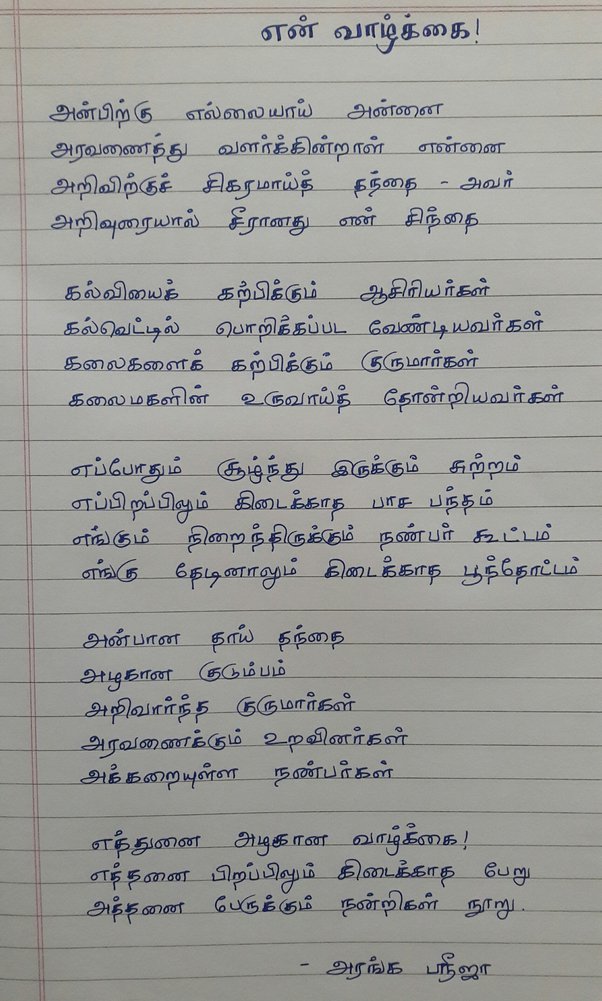 என் வாழ்க்கை!
அன்பிற்கு எல்லையாய் அன்னை
அரவணைத்து வளர்க்கின்றாள் என்னை
அறிவிற்குச் சிகரமாய்த் தந்தை - அவர்
அறிவுரையால் சீரானது என் சிந்தை
கல்வியைக் கற்பிக்கும் ஆசிரியர்கள்
கல்வெட்டில் பொறிக்கப்பட வேண்டியவர்கள்
கலைகளைக் கற்பிக்கும் குருமார்கள்
கலைமகளின் உருவாய்த் தோன்றியவர்கள்
எப்போதும் சூழ்ந்து இருக்கும் சுற்றம்
எப்பிறப்பிலும் கிடைக்காத பாச பந்தம்
எங்கும் நிறைந்திருக்கும் நண்பர் கூட்டம்
எங்கு தேடினாலும் கிடைக்காத பூந்தோட்டம்
அன்பான தாய் தந்தை
அழகான குடும்பம்
அறிவார்ந்த குருமார்கள்
அரவணைக்கும் உறவினர்கள்
அக்கறையுள்ள நண்பர்கள்
எத்துனை அழகான வாழ்க்கை!
எத்தனை பிறப்பிலும் கிடைக்காத பேறு
அத்தனை பேருக்கும் நன்றிகள் நூறு.
- அரங்க